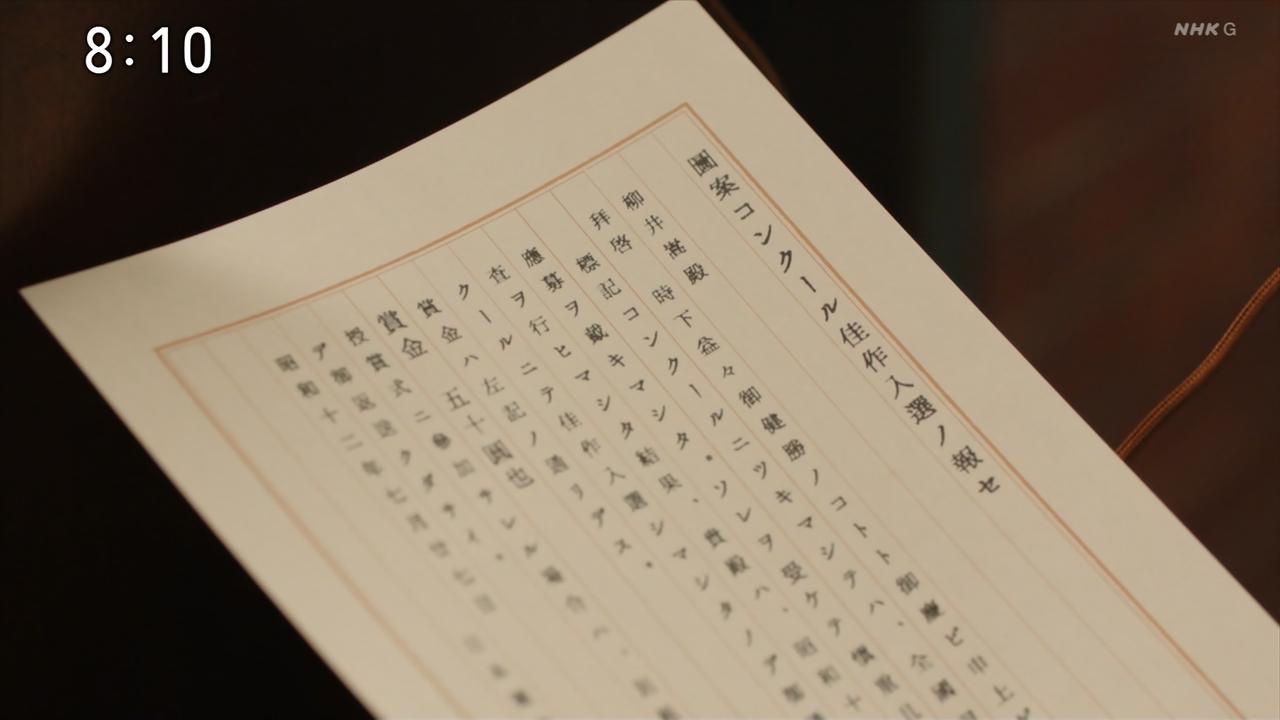 8:10
NHK G
圖案コンクール佳作入選ノ報セ
柳井嵩殿
拝啓 時下益々御健勝ノコトト御慶ビ申上
標記コンクールニツキマシテハ、全國
應募ヲ戴キマシタ。ソレヲ受ケテ慎重ニ
査ヲ行ヒマシタ結果、貴殿ハ、昭和十
クールニテ佳作入選シマシタノデ御
賞金ハ左記ノ通リデス。
賞金 五十圓也
授賞式ニ御参加サレル場合ハ、
デ御返送クダサイ。
昭和十二年七月廿七日